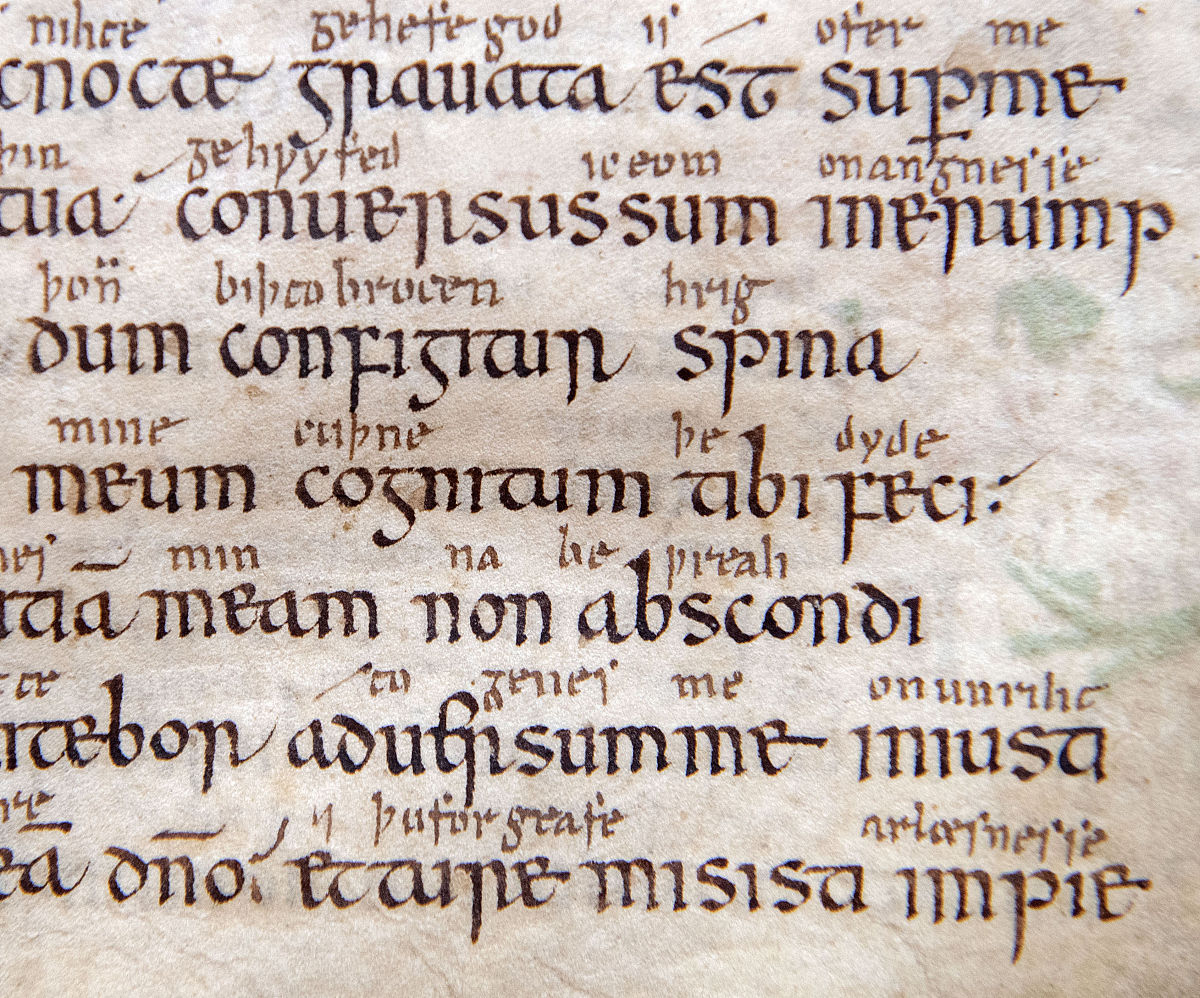 nihte gehefegod is ofer me
cnocte grauata est sup me
þin gehƿyrfed ic eom on angnesse
tua. conuersus sum inerump
þon̄ biþ tobrocen hrig
dum configitur spina
mine cuþne þe dyde
meum cognitum tibi feci:
nes min na be ƿreah
titiā meam non abscondi
to geanes me on unriht
itebor aduersum me iniusta
⁊ þu forgeafe arleasnesse
eā dn̄o: et tu remisisti impie